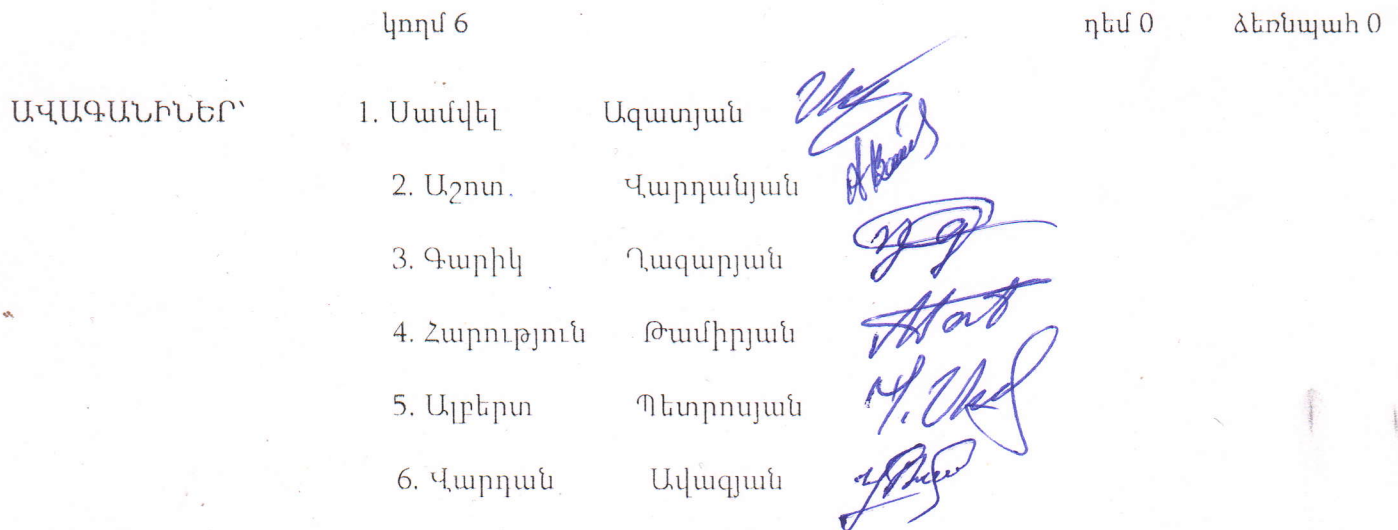 կողմ 6 դեմ 0 ձեռնպահ 0
ԱՎԱԳԱՆԻՆԵՐ՝ 1. Սամվել Ազատյան
2. Աշոտ Վարդանյան
3. Գարիկ Ղազարյան
4. Հարություն Թամիրյան
5. Ալբերտ Պետրոսյան
6. Վարդան Ավագյան